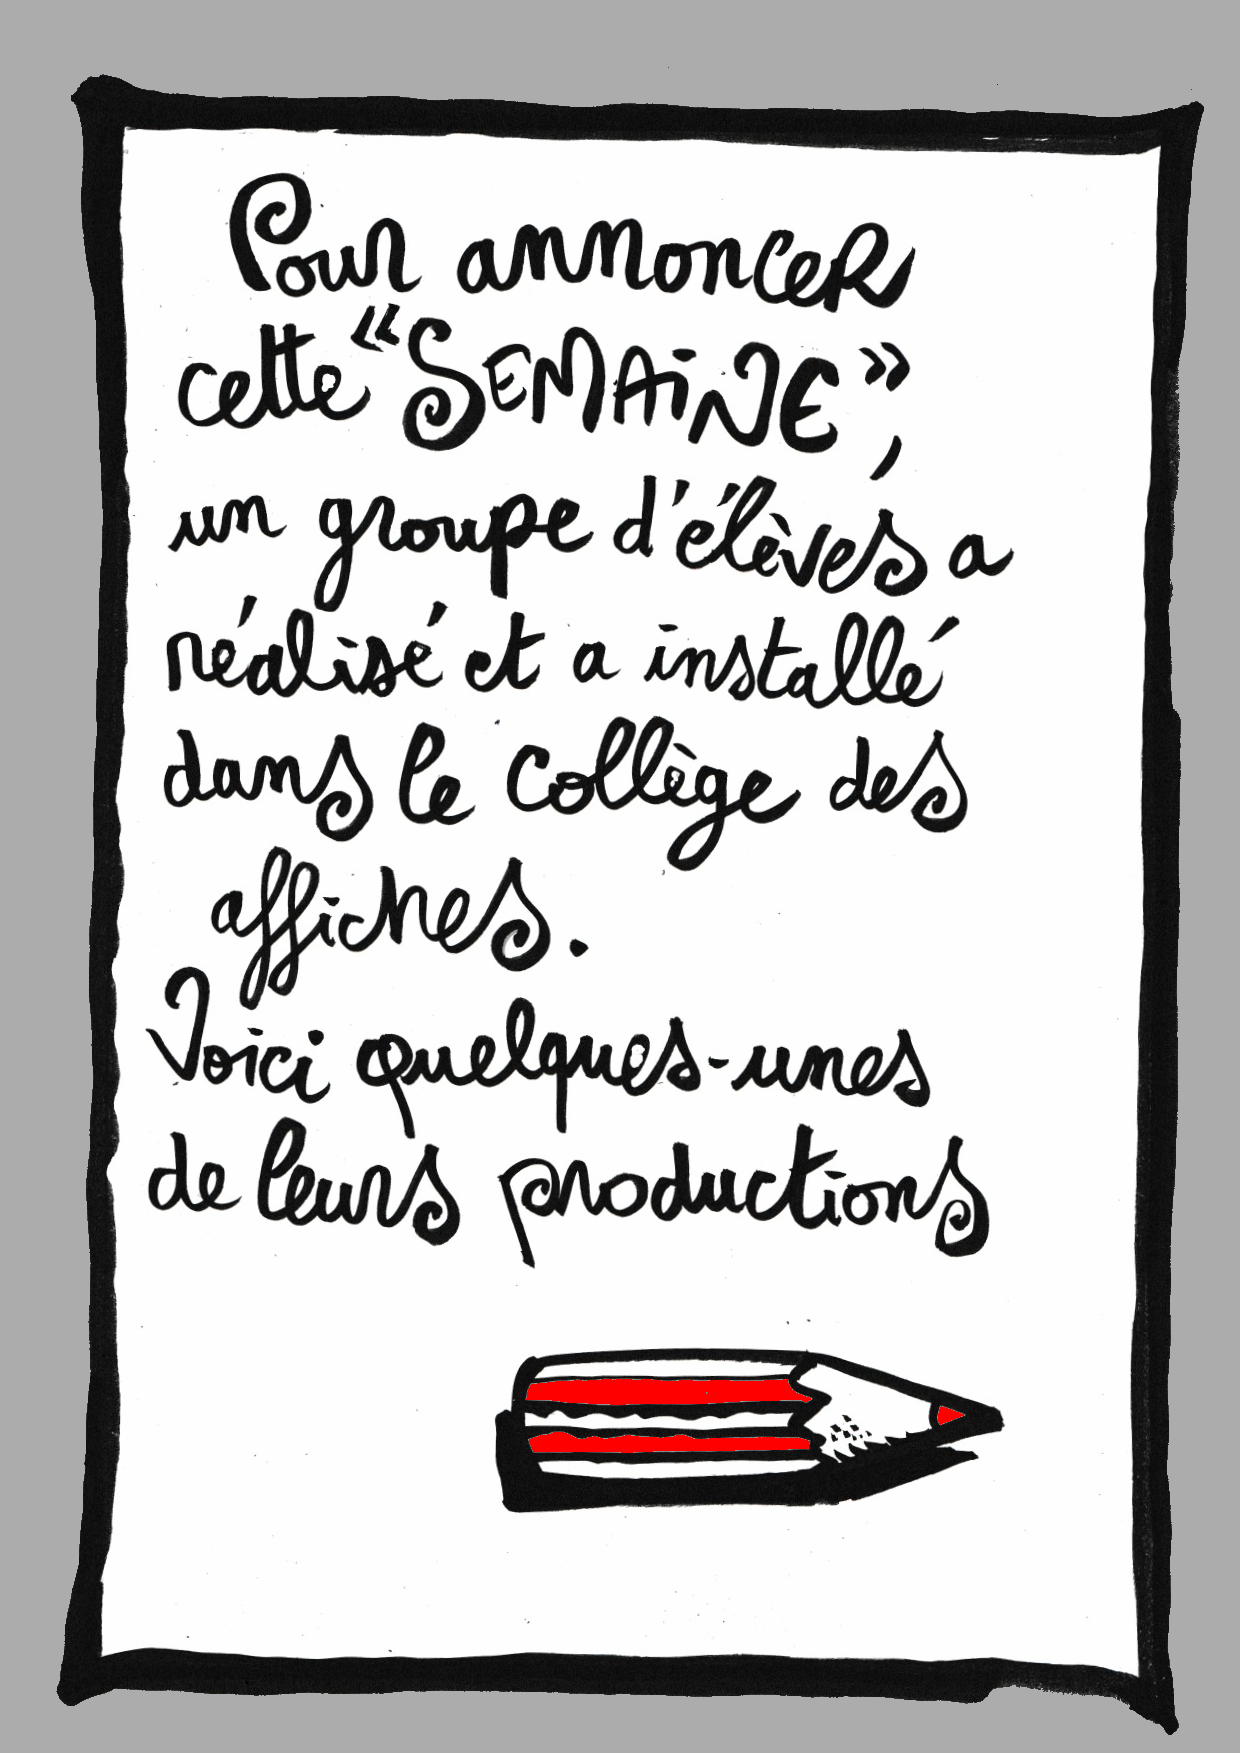 Pour annoncer
cette “SEMAiNE”,
un groupe d'élèves a
réalisé et a installé
dans le collège des
affiches.
Voici quelques-unes
de leurs productions